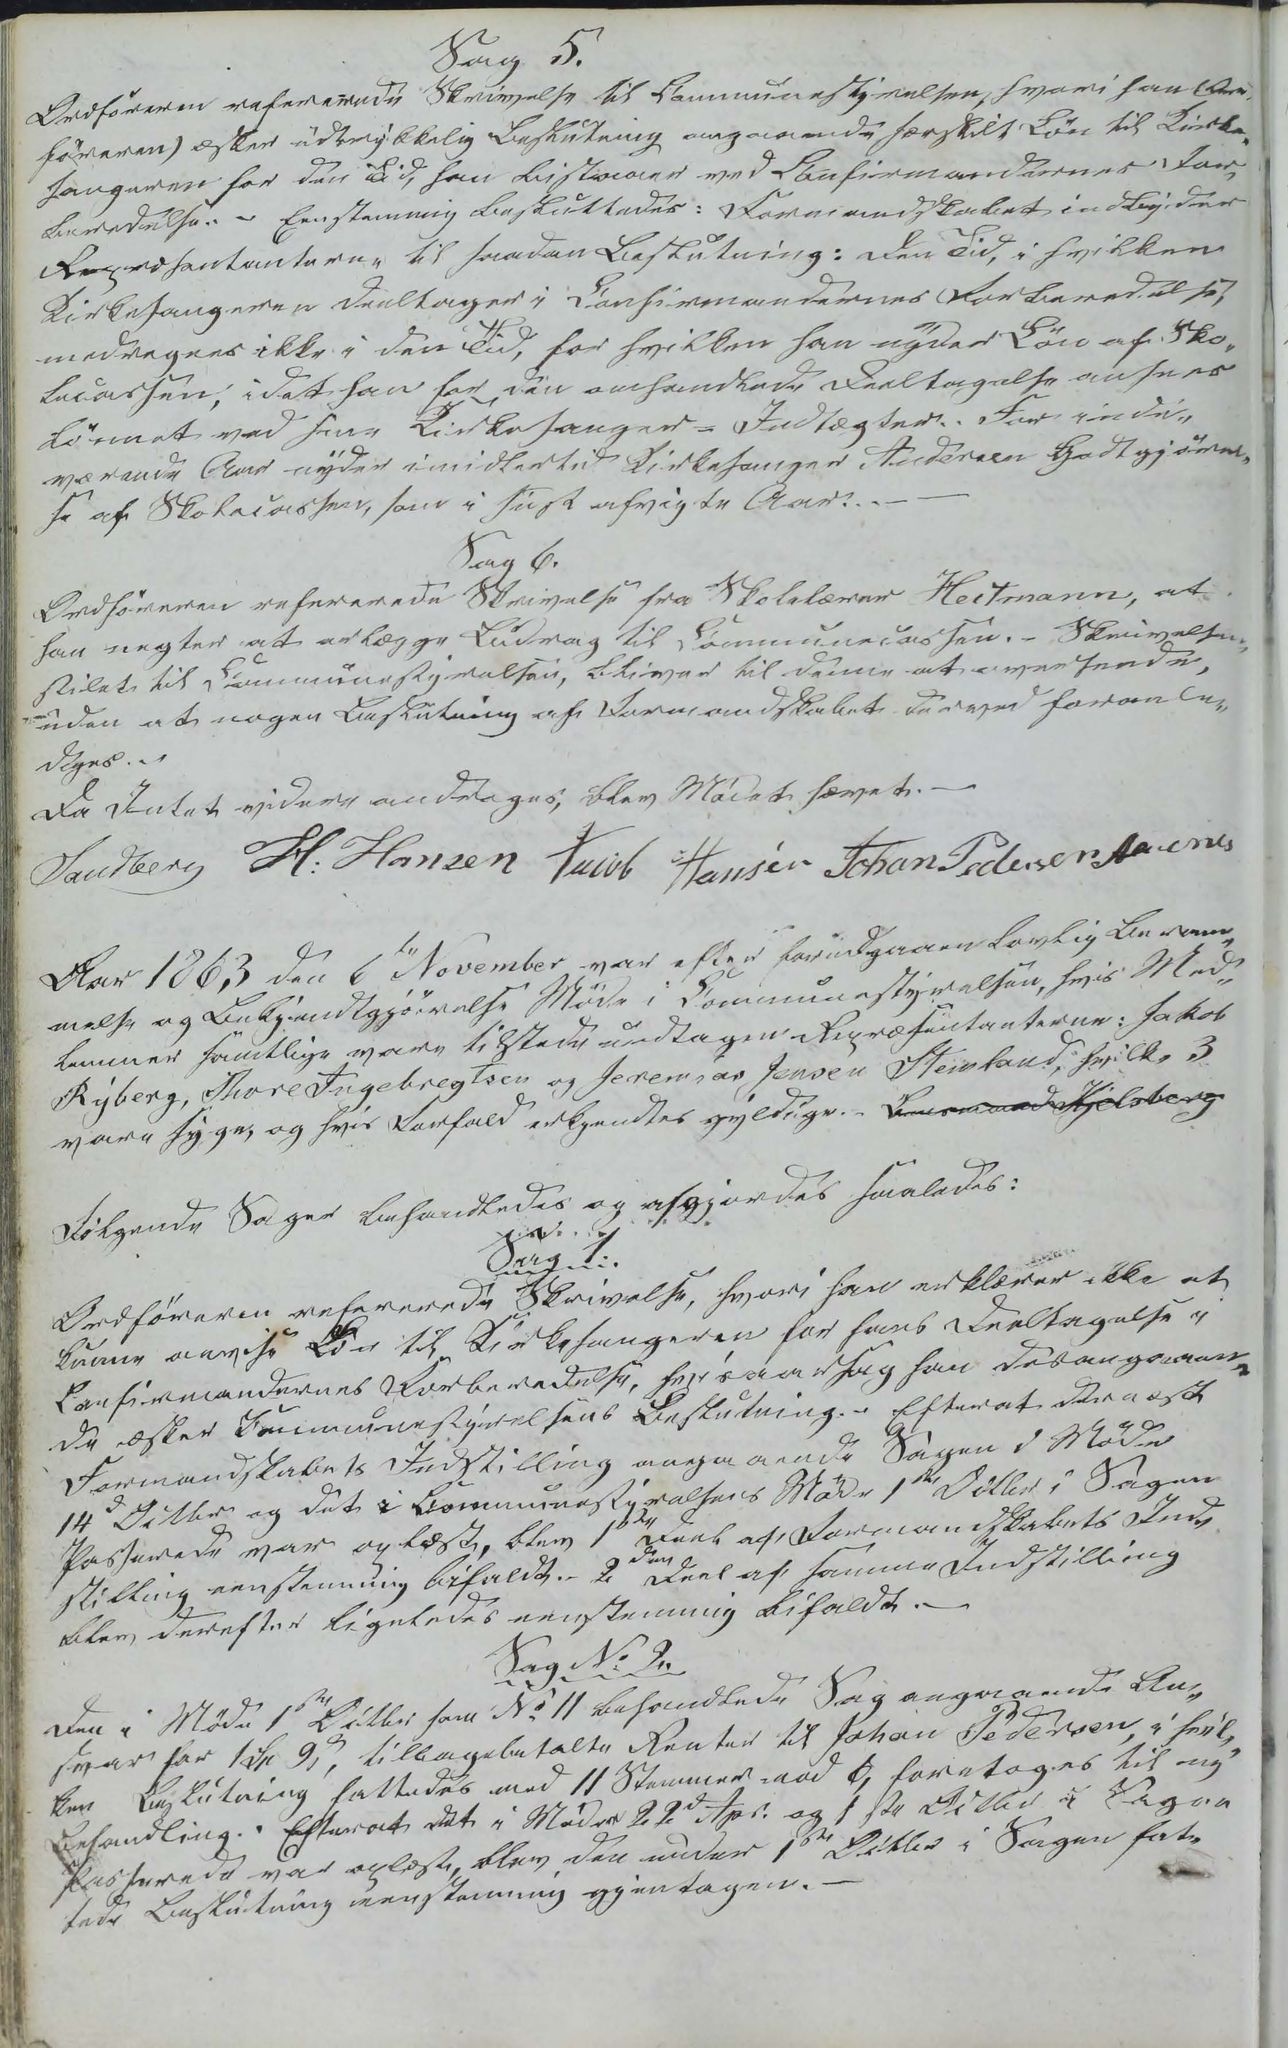 Sag 5.
Ordføreren refererede Skrivelse til Communestyrelsen, hvori han (Ord-
føreren) æsker udtrykkelig Beslutning angaaende særskilt Løn til Kirke-
sangeren for den Tid, han bistaaer ved Confirmandernes For-
beredelse. - Eenstemmig besluttedes: Formandskabet indbyder
Repræsentanterne til saadan Beslutning: Den Tid, i hvilken
Kirkesangeren deeltager i Confirmandernes Forberedelse,
medregnes ikke i den Tid, for hvilken han nyder Løn af Sko-
lecassen, idet han for den omhandlede Deeltagelse ansees
lønnet ved sine Kirkesanger-Indtægter. For inde-
værende Aar nyder imidlertid Kirkesanger Andersen Godtgjørel-
se af Skolecassen, som i sidst afvigte Aar. -
Sag 6.
Ordføreren refererede Skrivelse fra Skolelærer Heitmann, at
han negter at erlægge Bidrag til Communecassen. - Skrivelsen,
stilet til Communestyrelsen, bliver til denne at oversende,
uden at nogen Beslutning af Formandskabet derved foranle-
diges. -
Da Intet videre androges, blev Mødet hævet. -
Sandberg H. Hansen Jacob Hansen Johan Pedersen
Aar 1863 den 6te November var efter forudgaaen lovlig Beram-
melse og Bekjendtgjørelse Møde i Communestyrelsen, hvis Med-
lemmer samtlige vare tilstede undtagen Repræsentanterne: Jakob
Ryberg, Thore Ingebregtsen og Jeremias Jensen Steinland, hvilke 3
vare syge, og hvis Forfald erkjendtes gyldige. - Formand Kjelsberg
Følgende Sager behandledes og afgjordes saaledes:
Sag 1.
Ordføreren refererede Skrivelse, hvori han erklærer ikke at
kunne anvise Løn til Kirkesangeren for hans Deeltagelse i
Confirmandernes Forberedelse, hvisaarsag han desangaaen-
de æsker Communestyrelsens Beslutning. - Efterat dernæst
Formandskabets Indstilling angaaende Sagen i Møde
14d Octbr og det i Communestyrelsens Møde 1ste Octbr i Sagen
Passerede var oplæst, blev 1ste Deel af Formandskabets Ind-
stilling eenstemmig bifaldt. - 2den Deel af samme Indstilling
blev derefter ligeledes eenstemmig bifaldt. -
Sag No 2.
Den i Møde 1ste Octbr som No 11 behandlede Sag angaaende An-
svar for 1 Spd 9 s, tilbagebetalte Renter til Johan Pedersen, i hvil-
ken Beslutning fattedes med 11 Stemmer mod 6, foretoges til ny
Behandling. - Efterat det i Møder 22d Apr. og 1ste Octbr i Sagen
Passerede var oplæst, blev den under 1ste Octbr i Sagen fat-
tede Beslutning eenstemmig gjentagen. -